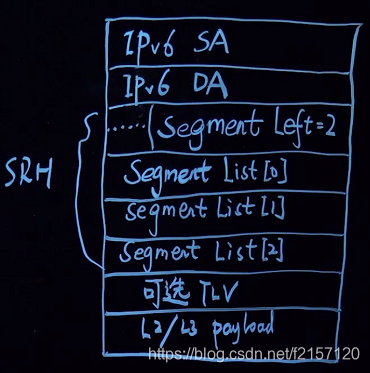 IPv6 SA
IPv6 DA
......| Segment Left=2
SRH
Segment List[0]
Segment List[1]
Segment List[2]
可选 TLV
L2/L3 payload
https://blog.csdn.net/f2157120